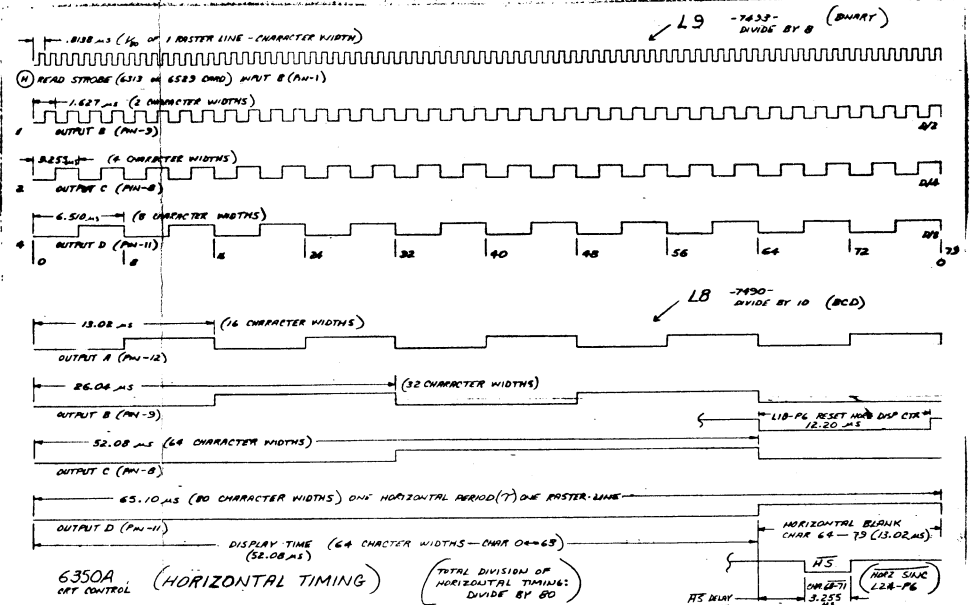 L9 -7493- (BINARY)
DIVIDE BY 8
.8138 µs (1/80 OF 1 RASTER LINE - CHARACTER WIDTH)
(H) READ STROBE (6313 OR 6529 CARD) INPUT B (PIN-1)
1.627 µs (2 CHARACTER WIDTHS)
1 OUTPUT B (PIN-9) D/2
3.255 µs (4 CHARACTER WIDTHS)
2 OUTPUT C (PIN-8) D/4
6.510 µs (8 CHARACTER WIDTHS)
4 OUTPUT D (PIN-11) D/8
0 8 16 24 32 40 48 56 64 72 79
0
L8 -7490-
DIVIDE BY 10 (BCD)
13.02 µs (16 CHARACTER WIDTHS)
OUTPUT A (PIN-12)
26.04 µs (32 CHARACTER WIDTHS)
OUTPUT B (PIN-9)
L18-P6 RESET HORZ DISP CTR
12.20 µs
52.08 µs (64 CHARACTER WIDTHS)
OUTPUT C (PIN-8)
65.10 µs (80 CHARACTER WIDTHS) ONE HORIZONTAL PERIOD (T) ONE RASTER LINE
OUTPUT D (PIN-11)
HORIZONTAL BLANK
CHAR 64 — 79 (13.02 µs)
DISPLAY TIME (64 CHACTER WIDTHS — CHAR 0↔63)
(52.08 µs)
6350A (HORIZONTAL TIMING)
CRT CONTROL
(TOTAL DIVISION OF
HORIZONTAL TIMING:
DIVIDE BY 80)
HS
(HORZ SINC
L2A-P6)
CHAR 68-71
HS DELAY
3.255
µs